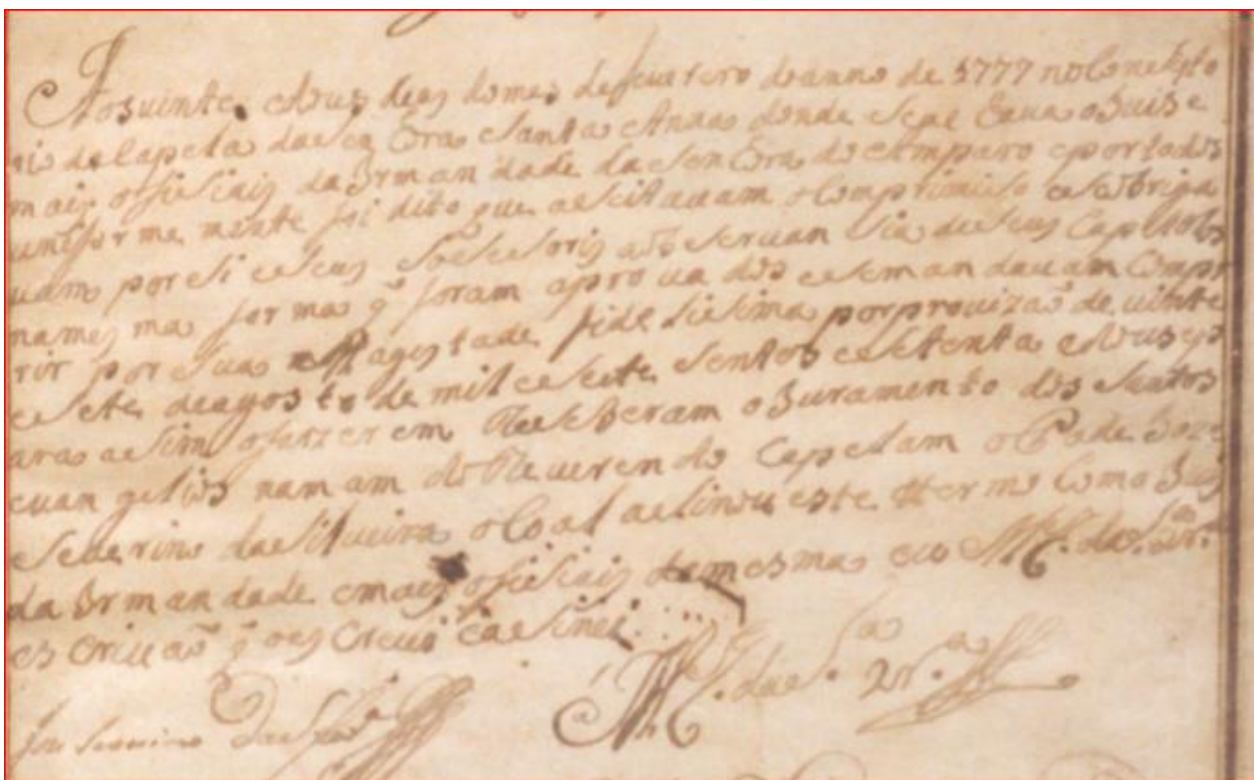 Aos vinte e dous deas do mes de feuarero do anno de 1777 no Consisto
rio da Capela da senhora santa Anna donde se axaua o Juis e
mais ofisiais da Irmandade da senhora do emparo e por todos
uniforme mente foi dito que aseitauam o Compromiso e se obriga
uam por si e seus susesoris a observansia de seus Capitolos
na mesma forma q̃ foram aprouados e se mandauam Compr
rir por sua Magestade fidelisima por prouizaõ de uinte
e sete de agosto de mil e sete sentos e setenta e dous e p
ara asim o fazerem Reseberam o Juramento dos santos
euangelios na mam do Reuerendo Capelam o P.e Joze
Seuerino da Silueira o Coal asinou este termo Como Juis
da Irmandade e mais ofisiais da mesma eu M.el da S.a
escriuaõ q̃ o escreui e asinei
Seuerino da Silu.ra
M.el da S.a